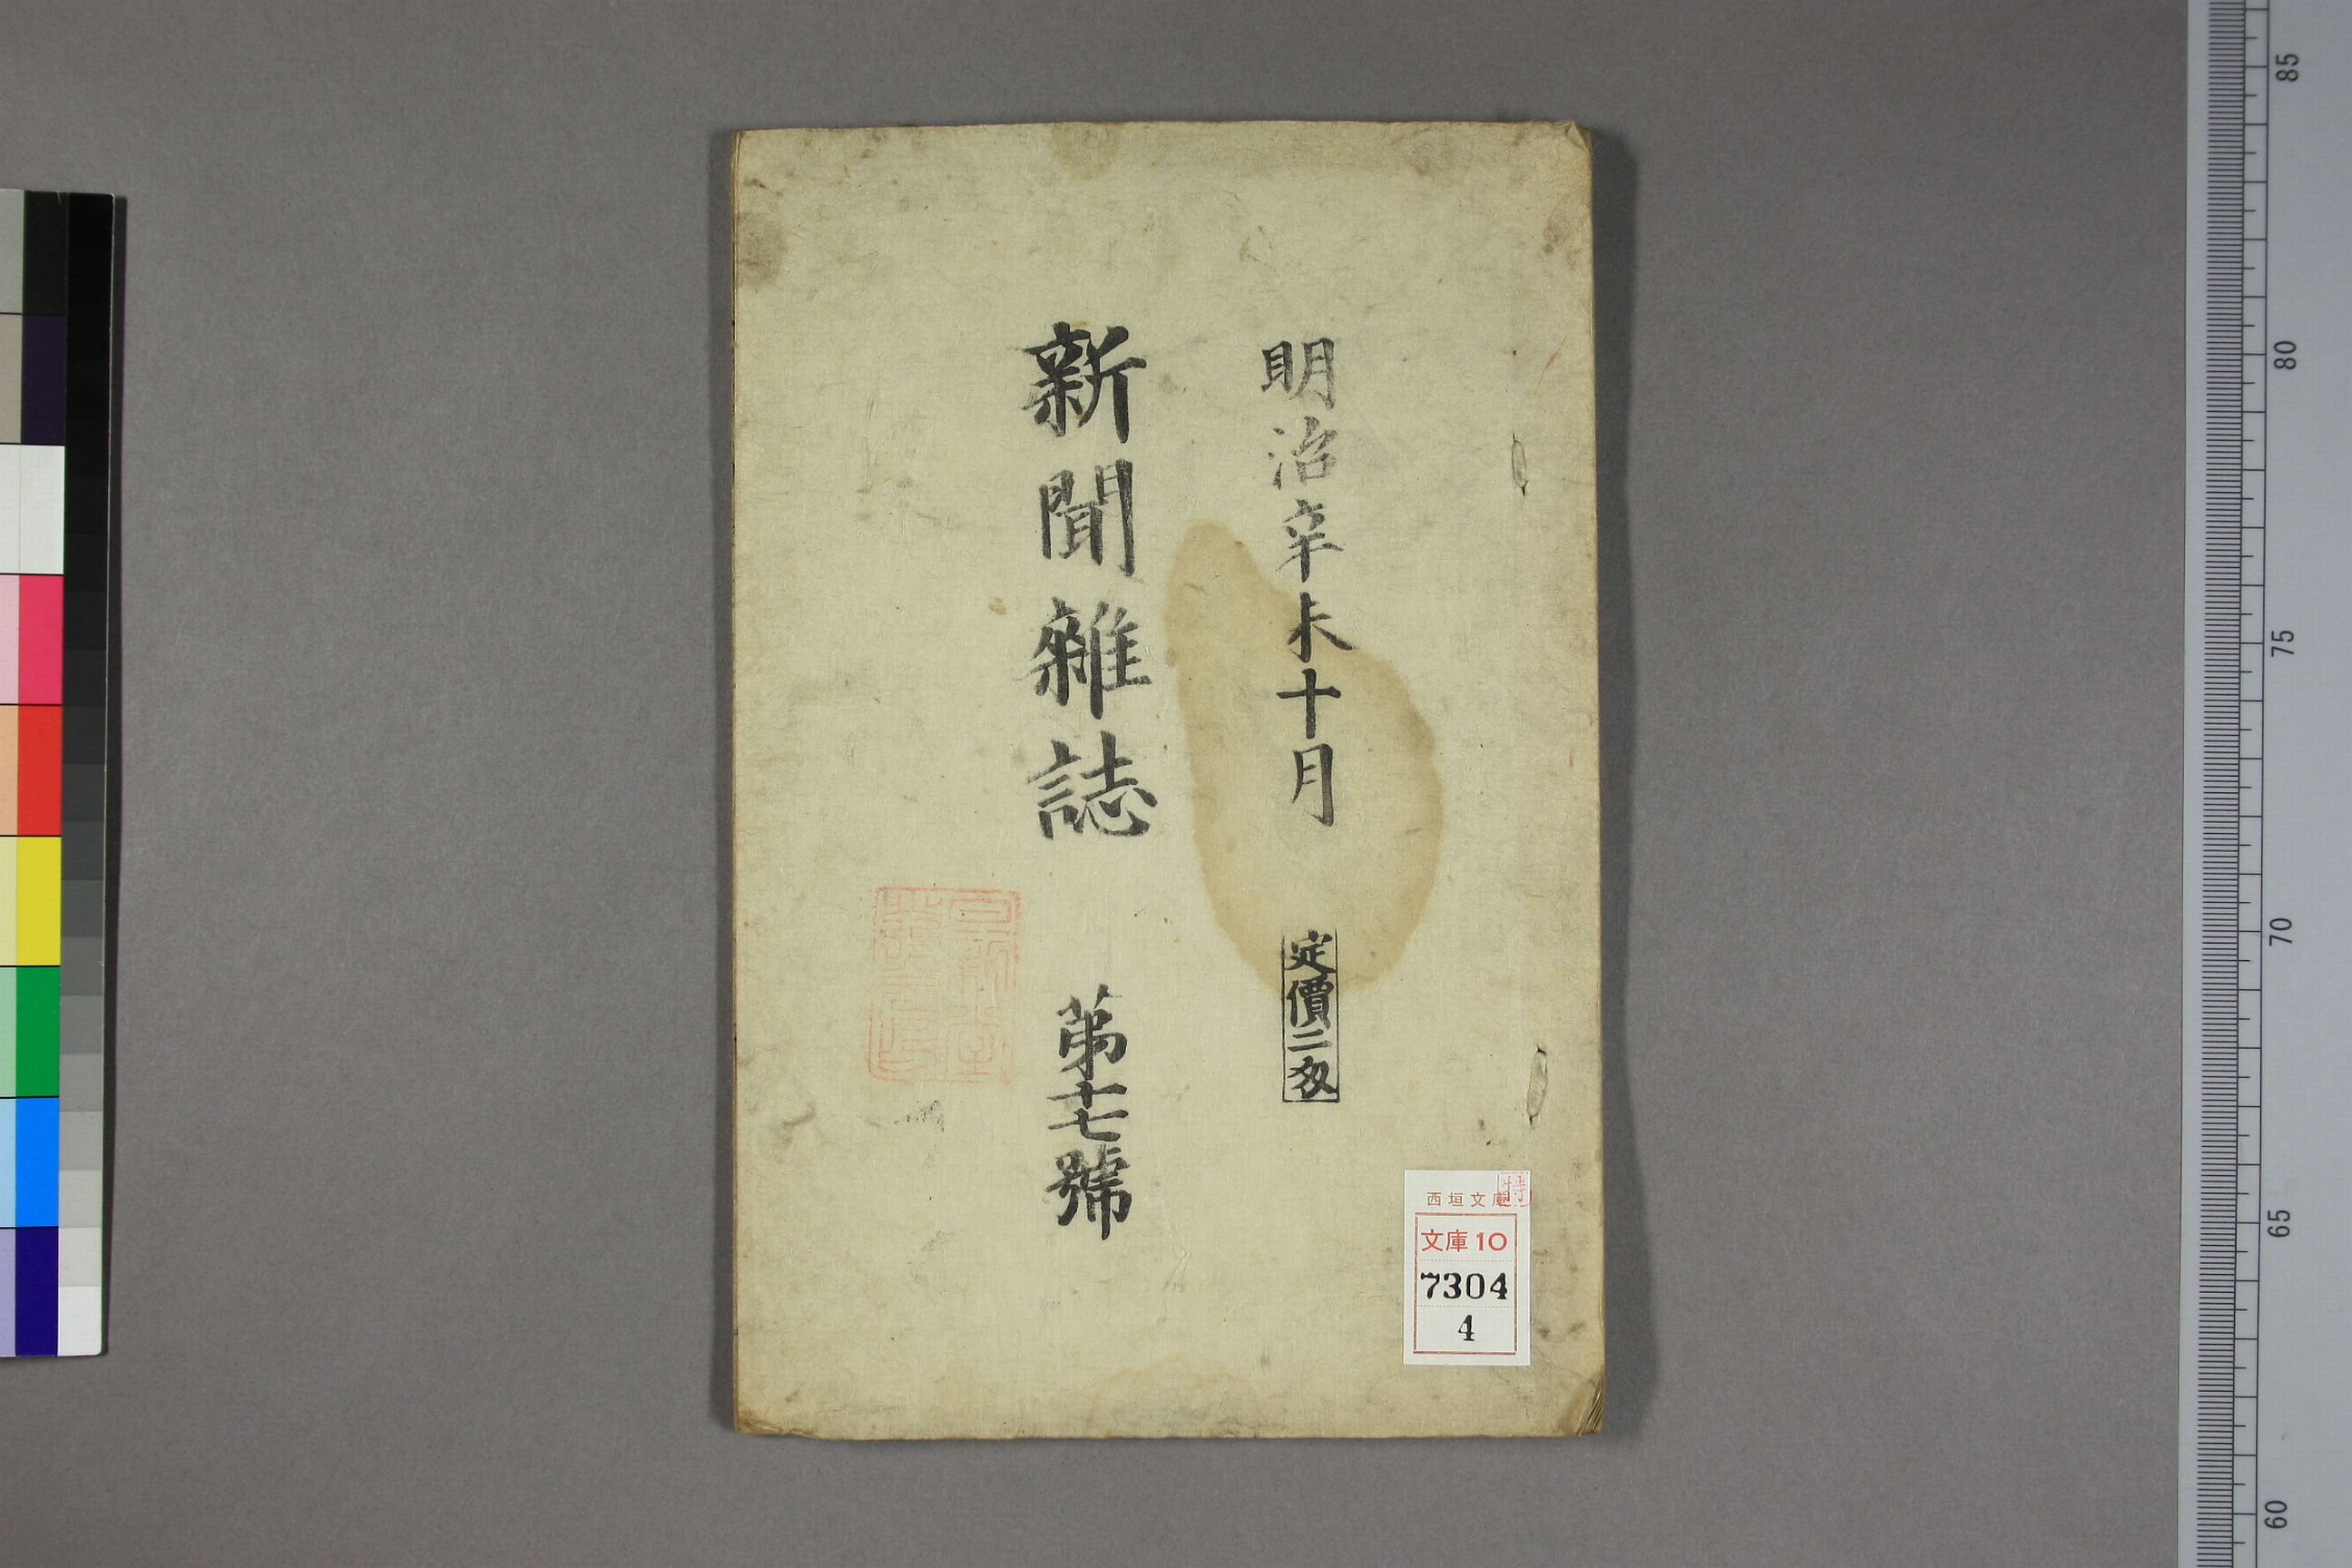 明治辛未十月
定價二匁
新聞雜誌
第十七號
西垣文庫
特
文庫10
7304
4
85
80
75
70
65
60